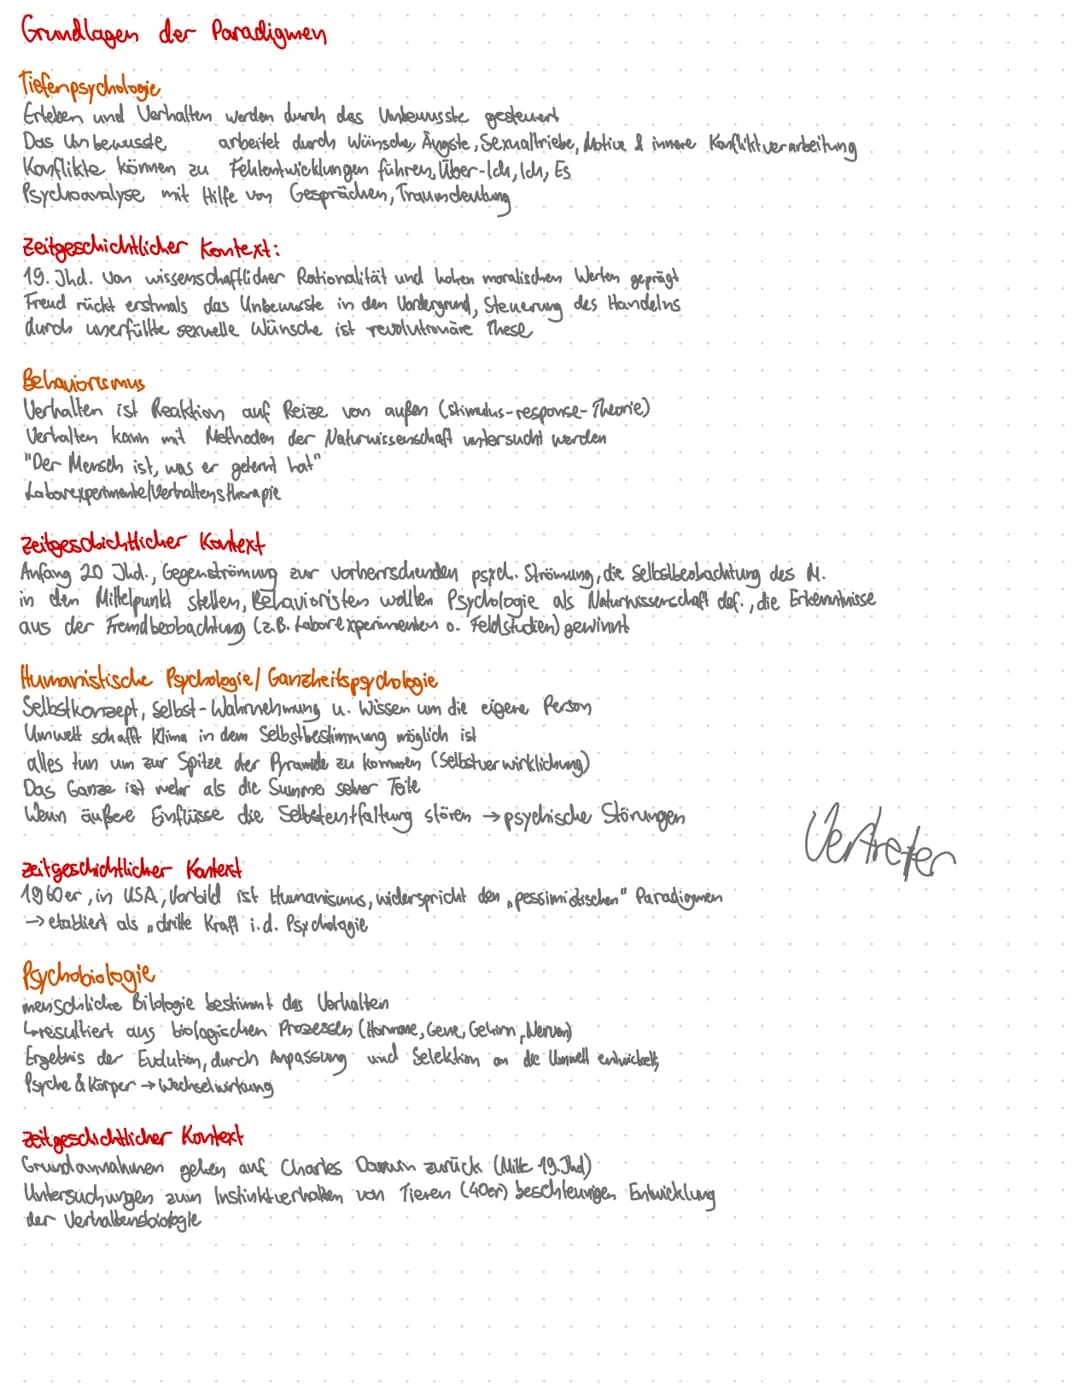 Grundlagen der Paradigmen
Tiefenpsychologie
Erleben und Verhalten werden durch das Unbewusste gesteuert
Das Unbewusste arbeitet durch Wünsche, Ängste, Sexualtriebe, Motive & innere Konfliktverarbeitung
Konflikte können zu Fehlentwicklungen führen, Über-Ich, Ich, Es
Psychoanalyse mit Hilfe von Gesprächen, Traumdeutung
Zeitgeschichtlicher Kontext:
19. Jhd. von wissenschaftlicher Rationalität und hohen moralischen Werten geprägt
Freud rückt erstmals das Unbewusste in den Vordergrund, Steuerung des Handelns
durch unerfüllte sexuelle Wünsche ist revolutionäre These
Behaviorismus
Verhalten ist Reaktion auf Reize von außen (stimulus-response-Theorie)
Verhalten kann mit Methoden der Naturwissenschaft untersucht werden
"Der Mensch ist, was er gelernt hat"
Laborexperimente/Verhaltenstherapie
Zeitgeschichtlicher Kontext
Anfang 20 Jhd., Gegenströmung zur vorherrschenden psych. Strömung, die Selbstbeobachtung des M.
in den Mittelpunkt stellen, Behavioristen wollten Psychologie als Naturwissenschaft def., die Erkenntnisse
aus der Fremdbeobachtung (z.B. Laborexperimenten o. Feldstudien) gewinnt
Humanistische Psychologie/ Ganzheitspsychologie
Selbstkonzept, Selbst-Wahrnehmung u. Wissen um die eigene Person
Umwelt schafft Klima in dem Selbstbestimmung möglich ist
alles tun um zur Spitze der Pyramide zu kommen (Selbstverwirklichung)
Das Ganze ist mehr als die Summe seiner Teile
Wenn äußere Einflüsse die Selbstentfaltung stören → psychische Störungen
Vertreter
zeitgeschichtlicher Kontext
1960er, in USA, Vorbild ist Humanismus, widerspricht den „pessimistischen" Paradigmen
→ etabliert als „dritte Kraft i.d. Psychologie
Psychobiologie
menschliche Bilologie bestimmt das Verhalten
↳ resultiert aus biologischen Prozessen (Hormone, Gene, Gehirn, Nerven)
Ergebnis der Evolution, durch Anpassung und Selektion an die Umwelt entwickelt,
Psyche & Körper → Wechselwirkung
zeitgeschichtlicher Kontext
Grundannahmen gehen auf Charles Darwin zurück (Mitte 19. Jhd)
Untersuchungen zum Instinktverhalten von Tieren (40er) beschleunigen Entwicklung
der Verhaltensbiologie